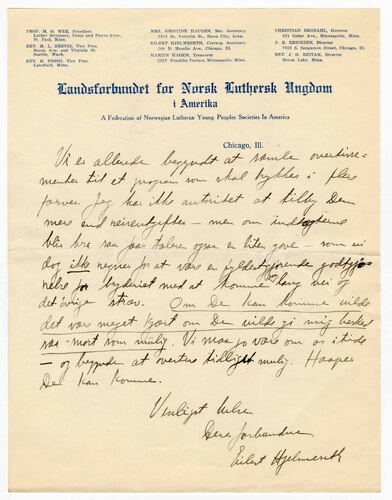 PROF. M. O. WEE, President
Luther Seminary, Como and Pierce Aves.,
St. Paul, Minn.
REV. M. L. NESVIG, Vice Pres.
Boren Ave. and Virginia St.
Seattle, Wash.
REV. O. FOSSO, Vice Pres.
Lakefield, Minn.
MRS. KRISTINE HAUGEN, Rec. Secretary
1912 S. Cornelia St., Sioux City, Iowa
EILERT HJELMSETH, Corresp. Secretary
144 N. Menard Ave., Chicago, Ill.
MARIUS HAGEN, Treasurer
2927 Franklin Terrace, Minneapolis, Minn.
CHRISTIAN BRODAHL, Director
621 Cedar Ave., Minneapolis, Minn.
P. E. ERICKSEN, Director
7925 S. Sangamon Street, Chicago, Ill.
REV. J. O. REITAN, Director
Heron Lake, Minn.
Landsforbundet for Norsk Luthersk Ungdom
i Amerika
A Federation of Norwegian Lutheran Young Peoples Societies In America
Chicago, Ill.
Vi er allerede begyndt at samle
til et program som skal trykkes i flere
farver. Jeg har ikke autoritet at tilby Dem
mere end reiseutgifter – men om indtægterne
blir bra saa faar taleren ogsaa en liten gave – som vi
dog ikke regner for at være en
for bryderiet med at komme lang vei og
det øvrige stræv. Om De kan komme vilde
det være meget kjært om De vilde gi mig besked
saa snart som mulig. Vi maa jo være om os itide
– og begynde at avertere tidligst mulig. Haaper
De kan komme.
Venligst hilsen
Deres forbundne
Eilert Hjelmseth